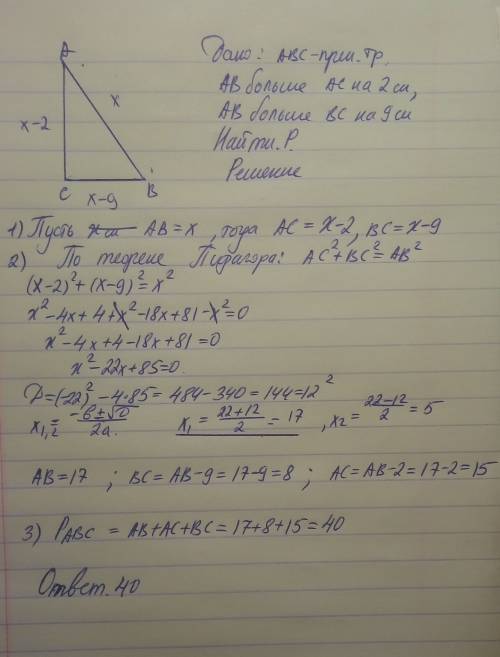 A
x
x-2
C
x-9
B
Дано: ABC-прям. тр.
AB больше AC на 2 см,
AB больше BC на 9 см
Найти. P.
Решение
1) Пусть AB = x, тогда AC = x-2, BC = x-9
2) По теореме Пифагора: AC²+BC²=AB²
(x-2)²+(x-9)²=x²
x²-4x+4+x²-18x+81-x²=0
x²-4x+4-18x+81=0
x²-22x+85=0.
D=(-22)²-4·85=484-340=144=12²
x₁,₂=-b±√D/2a. x₁=22+12/2=17, x₂=22-12/2=5
AB=17 ; BC=AB-9=17-9=8 ; AC=AB-2=17-2=15
3) PABC = AB+AC+BC=17+8+15=40
Ответ. 40